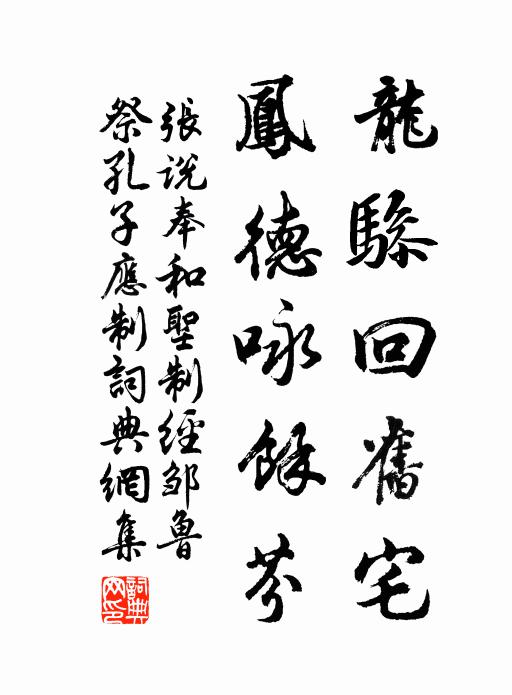 龍驂回舊宅
鳳德咏餘芬
張说奉和聖制經邹魯
祭孔子應制詞典網集
詞典网印